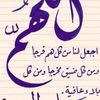 اللهم
اجعل لنا من كل هم فرجا
ومن كل ضيق مخرجا ومن كل
بلاء عافية